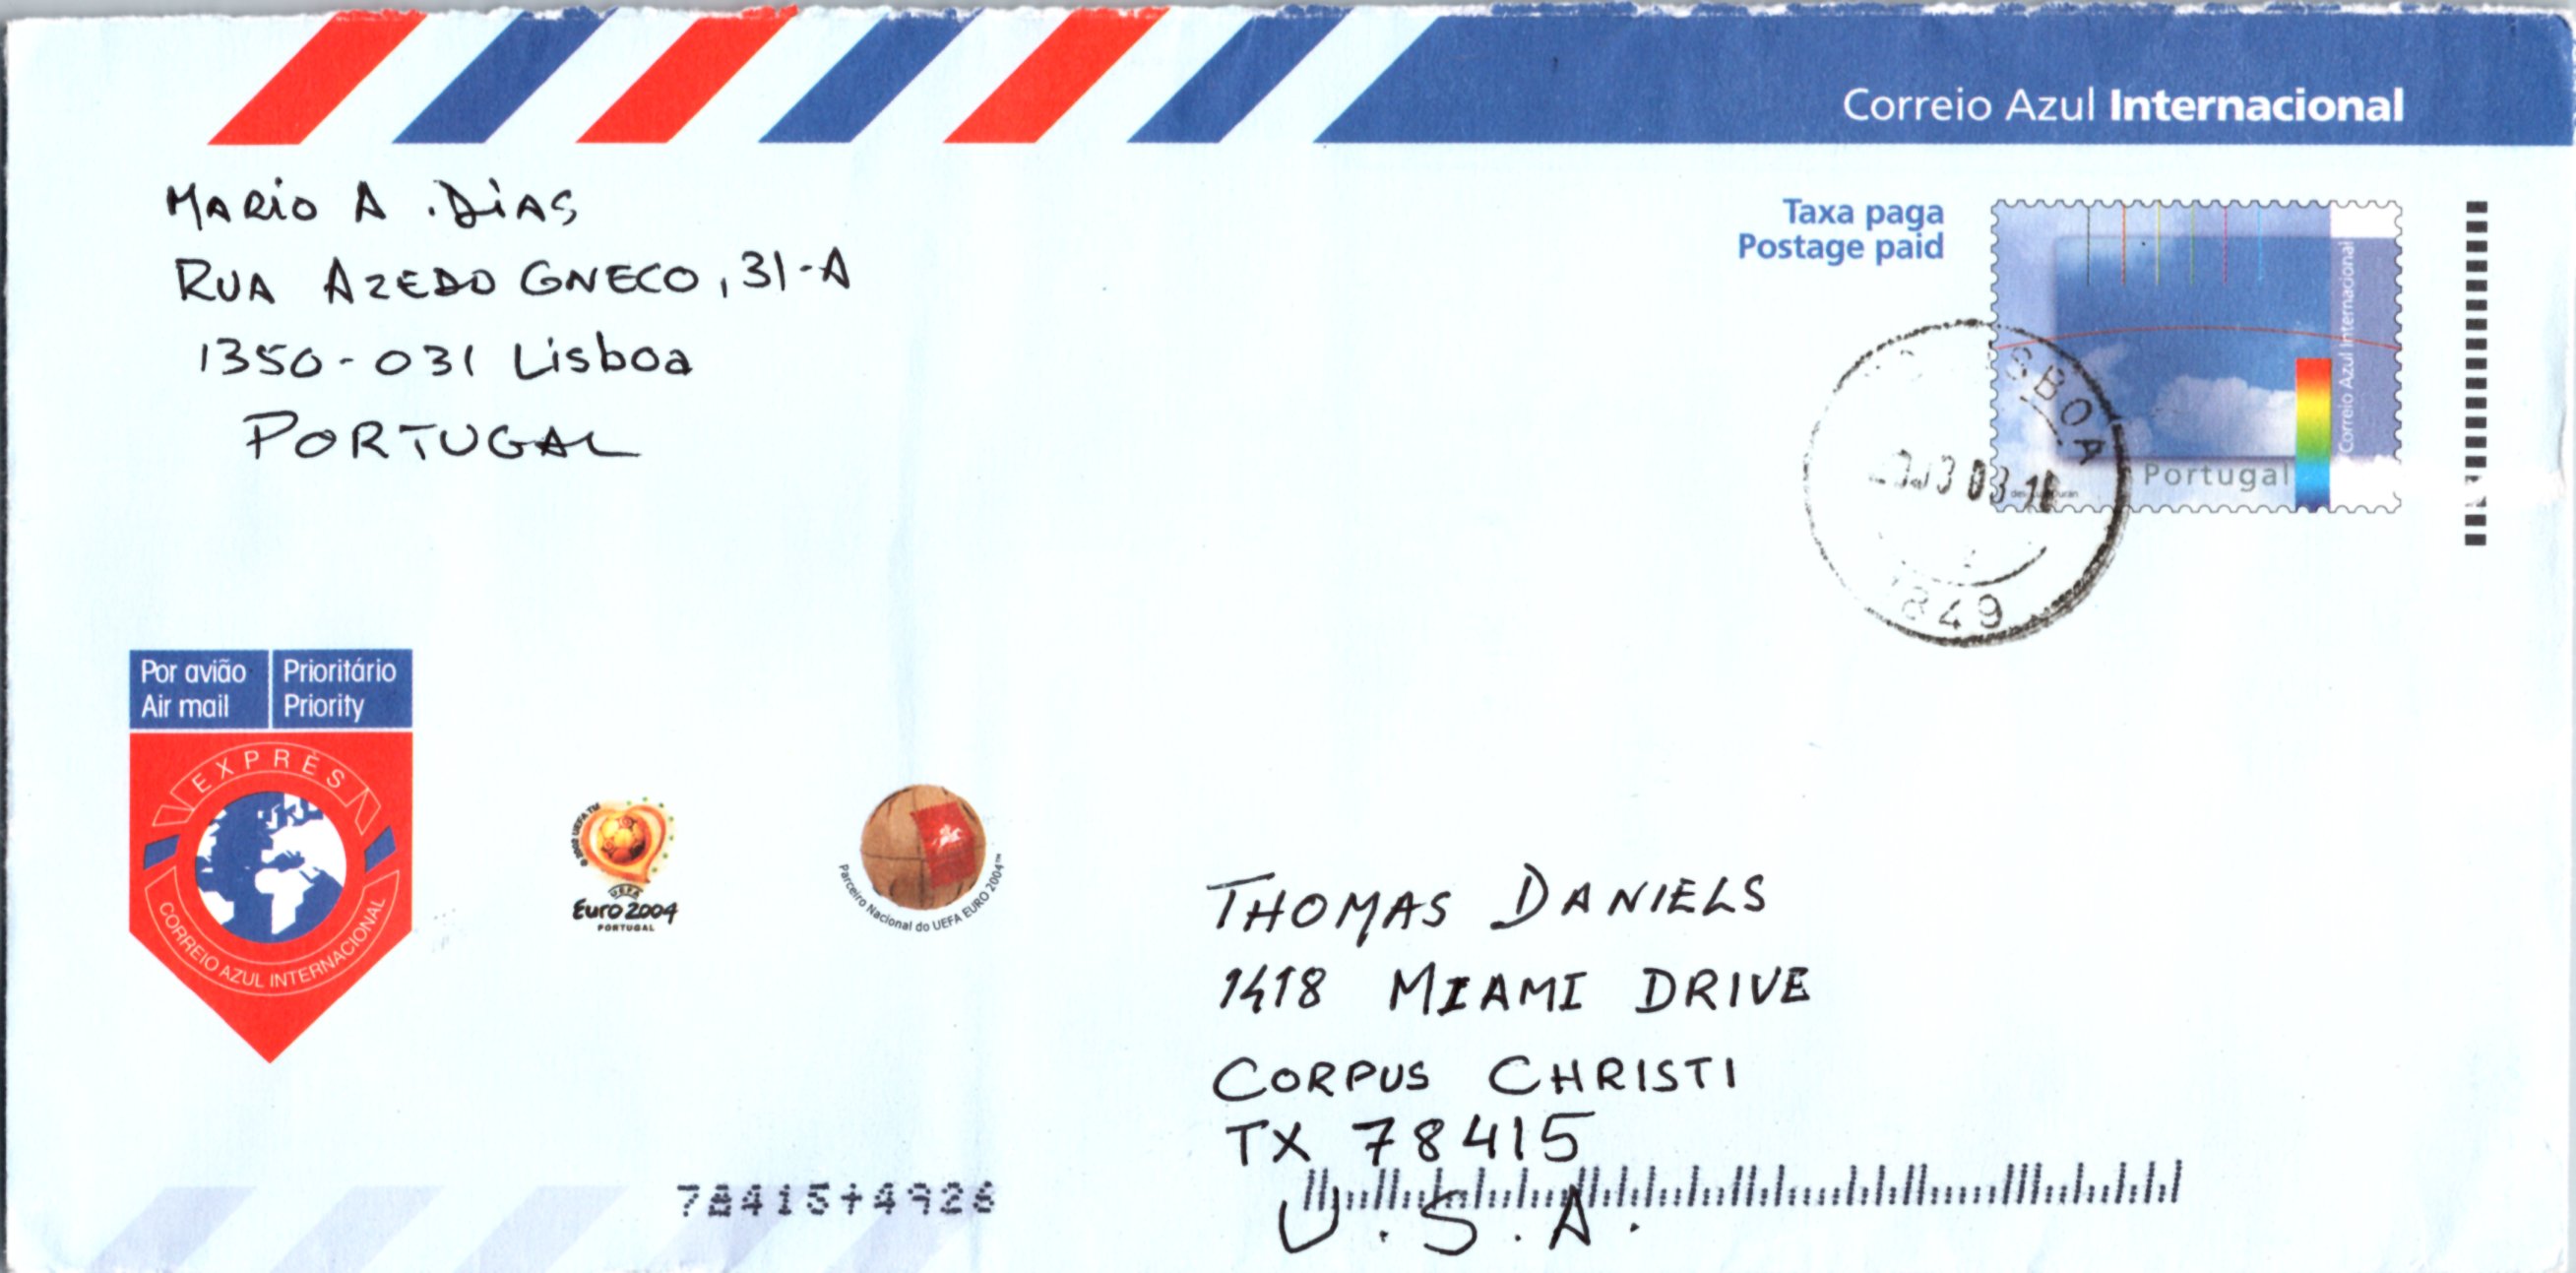 Correio Azul Internacional
MARIO A. DIAS
RUA AZEDO GNECO, 31-A
1350-031 Lisboa
PORTUGAL
Taxa paga
Postage paid
Correio Azul Internacional
Portugal
849
Por avião
Air mail
Prioritário
Priority
EXPRÈS
CORREIO AZUL INTERNACIONAL
© 2002 UEFA TM
UEFA
Euro 2004
PORTUGAL
Parceiro Nacional do UEFA EURO 2004™
THOMAS DANIELS
1418 MIAMI DRIVE
CORPUS CHRISTI
TX 78415
U.S.A.
78415+4926